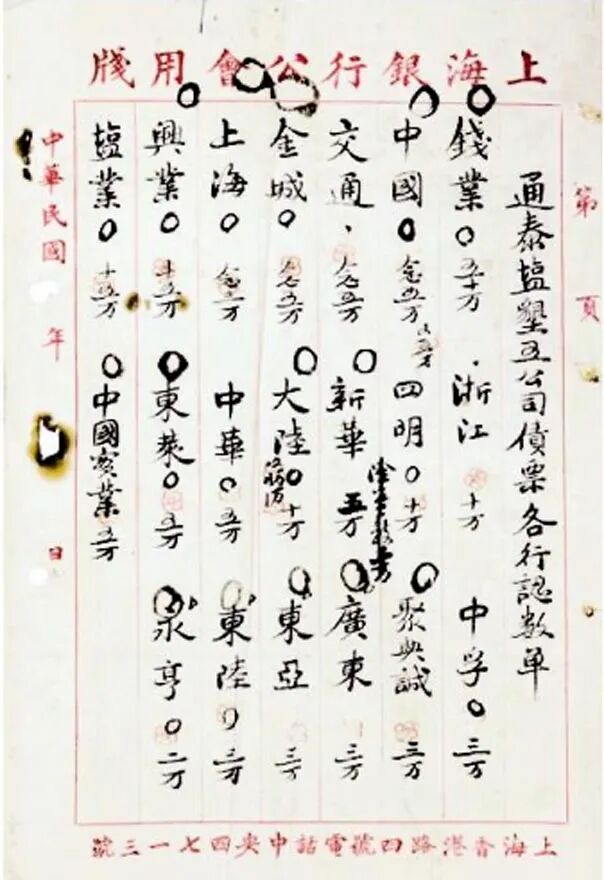 上海銀行公會用牋
第 頁
通泰塩墾五公司債票各行認數單
錢業 五十万 浙江 十万 中孚 三万
中國 念五万 四明 十万 聚興誠 三万
交通 念五万 新華 五万 廣東 三万
金城 大陸 十万 東亞 三万
上海 中華 五万 東陸 三万
興業 十五万 東萊 五万 永亨 二万
塩業 十五万 中國實業 五万
中華民國 年 日
上海香港路四號電話中央四七一三號